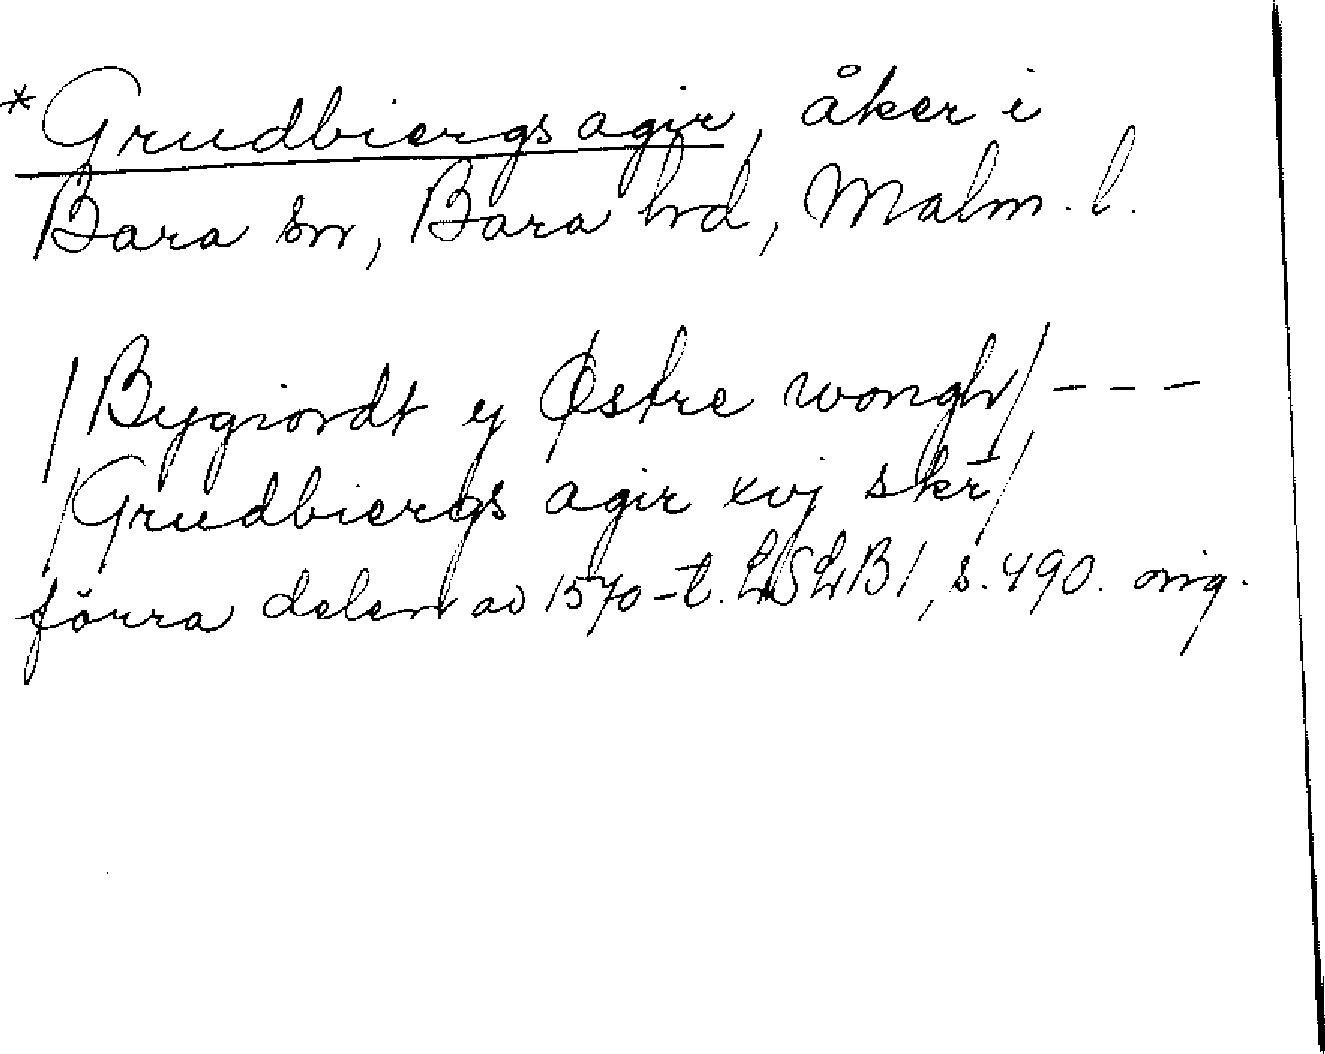 *Grudbiergs agir, åker i
Bara sn, Bara hd, Malm. l.
/Bygiordt y Østre wongh/ - - -
/Grudbiergs agir xvj skr̄/
förra delen av 1570-t. LSLB1, s. 490. orig.